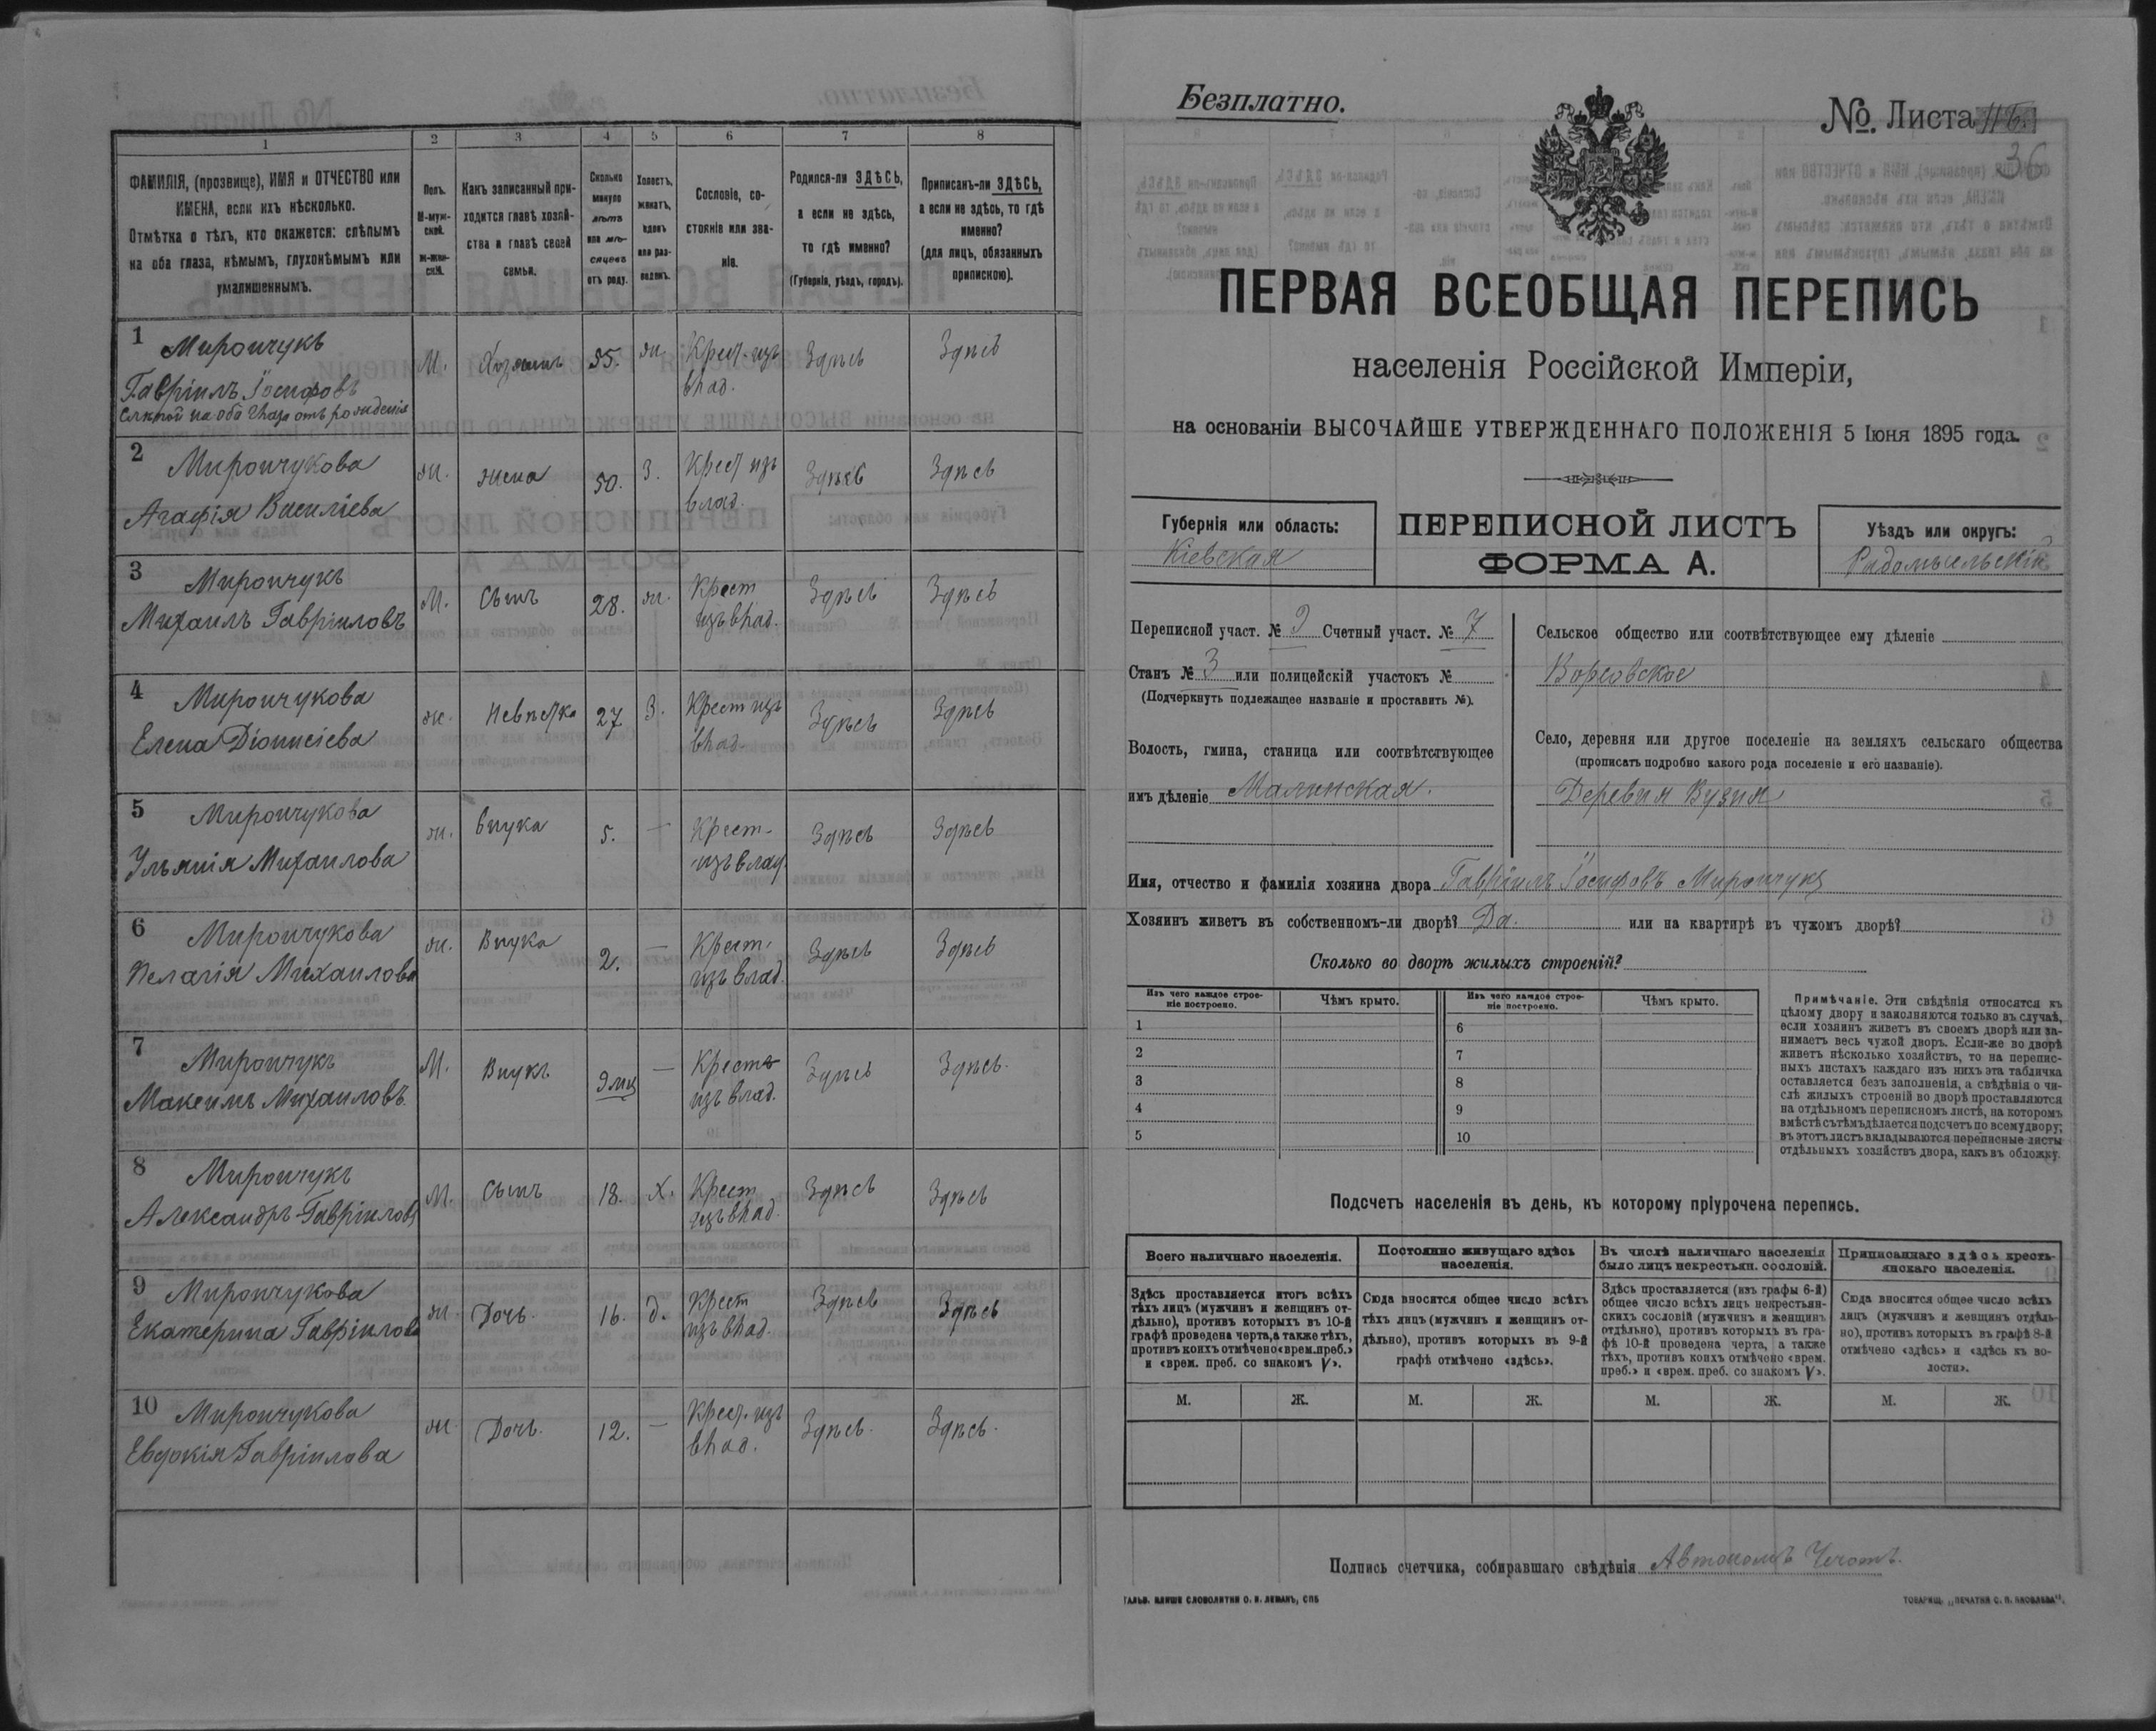 1
2
3
4
5
6
7
8
ФАМИЛІЯ, (прозвище), ИМЯ и ОТЧЕСТВО или
ИМЕНА, если ихъ нѣсколько.
Отмѣтка о тѣхъ, кто окажется: слѣпымъ
на оба глаза, нѣмымъ, глухонѣмымъ или
умалишеннымъ.
Полъ.
М-муж-
ской.
ж-жен-
скій.
Какъ записанный при-
ходится главѣ хозяй-
ства и главѣ своей
семьи.
Сколько
минуло
лѣтъ
или мѣ-
сяцевъ
отъ роду.
Холостъ,
женатъ,
вдовъ
или раз-
веденъ.
Сословіе, со-
стояніе или зва-
ніе.
Родился-ли ЗДѢСЬ,
а если не здѣсь,
то гдѣ именно?
(Губернія, уѣздъ, городъ).
Приписанъ-ли ЗДѢСЬ,
а если не здѣсь, то гдѣ
именно?
(для лицъ, обязанныхъ
припискою).
1 Мирончукъ
Гавріилъ Іосифовъ
Слѣпой на оба глаза отъ рожденія
М. Хозяинъ 55. ж. Крест. изъ
влад.
Здѣсь Здѣсь
2 Мирончукова
Агафія Василіева
ж. жена 50. З. Крест изъ
влад.
Здѣсь Здѣсь
3 Мирончукъ
Михаилъ Гавріиловъ
М. Сынъ 28. ж. Крест
изъ влад.
Здѣсь Здѣсь
4 Мирончукова
Елена Діонисіева
ж. Невѣстка 27 З. Крест изъ
влад.
Здѣсь Здѣсь
5 Мирончукова
Ульянія Михаилова
ж. Внука 5. — Крест-
изъ влад
Здѣсь Здѣсь
6 Мирончукова
Пелагія Михаилова
ж. Внука 2. — Крест.
изъ влад.
Здѣсь Здѣсь
7 Мирончукъ
Максимъ Михаиловъ.
М. Внукъ 9 мц — Крестъ
изъ влад.
Здѣсь Здѣсь.
8 Мирончукъ
Александръ Гавріиловъ
М. Сынъ 18. Х. Крест
изъ влад.
Здѣсь Здѣсь
9 Мирончукова
Екатерина Гавріилова
ж. Дочь. 16. д. Крест
изъ влад.
Здѣсь Здѣсь
10 Мирончукова
Евдокія Гавріилова
ж Дочь. 12. — Крест. изъ
влад.
Здѣсь. Здѣсь.
Безплатно.
№. Листа
36
ПЕРВАЯ ВСЕОБЩАЯ ПЕРЕПИСЬ
населенія Россійской Имперіи,
на основаніи ВЫСОЧАЙШЕ УТВЕРЖДЕННАГО ПОЛОЖЕНІЯ 5 Іюня 1895 года.
Губернія или область:
Кіевская
ПЕРЕПИСНОЙ ЛИСТЪ
ФОРМА А.
Уѣздъ или округъ:
Радомысльскій
Переписной участ. № 9 Счетный участ. № 7
Станъ № 3 или полицейскій участокъ №
(Подчеркнуть подлежащее названіе и проставить №).
Волость, гмина, станица или соотвѣтствующее
имъ дѣленіе Малинская.
Сельское общество или соотвѣтствующее ему дѣленіе
Ворсовское
Село, деревня или другое поселеніе на земляхъ сельскаго общества
(прописать подробно какого рода поселеніе и его названіе).
Деревня Вузня
Имя, отчество и фамилія хозяина двора Гавріилъ Іосифовъ Мирончукъ
Хозяинъ живетъ въ собственномъ-ли дворѣ? Да. или на квартирѣ въ чужомъ дворѣ?
Сколько во дворѣ жилыхъ строеній?
Изъ чего каждое строе-
ніе построено.
Чѣмъ крыто.
Изъ чего каждое строе-
ніе построено.
Чѣмъ крыто.
1 6
2 7
3 8
4 9
5 10
Примѣчаніе. Эти свѣдѣнія относятся къ
цѣлому двору и заполняются только въ случаѣ,
если хозяинъ живетъ въ своемъ дворѣ или за-
нимаетъ весь чужой дворъ. Если-же во дворѣ
живетъ нѣсколько хозяйствъ, то на перепис-
ныхъ листахъ каждаго изъ нихъ эта табличка
оставляется безъ заполненія, а свѣдѣнія о чи-
слѣ жилыхъ строеній во дворѣ проставляются
на отдѣльномъ переписномъ листѣ, на которомъ
вмѣстѣ съ тѣмъ дѣлается подсчетъ по всему двору;
въ этотъ листъ вкладываются переписные листы
отдѣльныхъ хозяйствъ двора, какъ въ обложку.
Подсчетъ населенія въ день, къ которому пріурочена перепись.
Всего наличнаго населенія.
Здѣсь проставляется итогъ всѣхъ
тѣхъ лицъ (мужчинъ и женщинъ от-
дѣльно), противъ которыхъ въ 10-й
графѣ проведена черта, а также тѣхъ,
противъ коихъ отмѣчено «врем. преб.»
и «врем. преб. со знакомъ V».
Постоянно живущаго здѣсь
населенія.
Сюда вносится общее число всѣхъ
тѣхъ лицъ (мужчинъ и женщинъ от-
дѣльно), противъ которыхъ въ 9-й
графѣ отмѣчено «здѣсь».
Въ числѣ наличнаго населенія
было лицъ некрестьян. сословій.
Здѣсь проставляется (изъ графы 6-й)
общее число всѣхъ лицъ некрестьян-
скихъ сословій (мужчинъ и женщинъ
отдѣльно), противъ которыхъ въ гра-
фѣ 10-й проведена черта, а также
тѣхъ, противъ коихъ отмѣчено «врем.
преб.» и «врем. преб. со знакомъ V».
Приписаннаго здѣсь кресть-
янскаго населенія.
Сюда вносится общее число всѣхъ
лицъ (мужчинъ и женщинъ отдѣль-
но), противъ которыхъ въ графѣ 8-й
отмѣчено «здѣсь» и «здѣсь къ во-
лости».
М. Ж. М. Ж. М. Ж. М. Ж.
Подпись счетчика, собиравшаго свѣдѣнія Автономъ
ГАЛЬВ. КЛИШЕ СЛОВОЛИТНИ О. И. ЛЕМАНЪ, СПБ
ТОВАРИЩ. „ПЕЧАТНЯ С. П. ЯКОВЛЕВА".